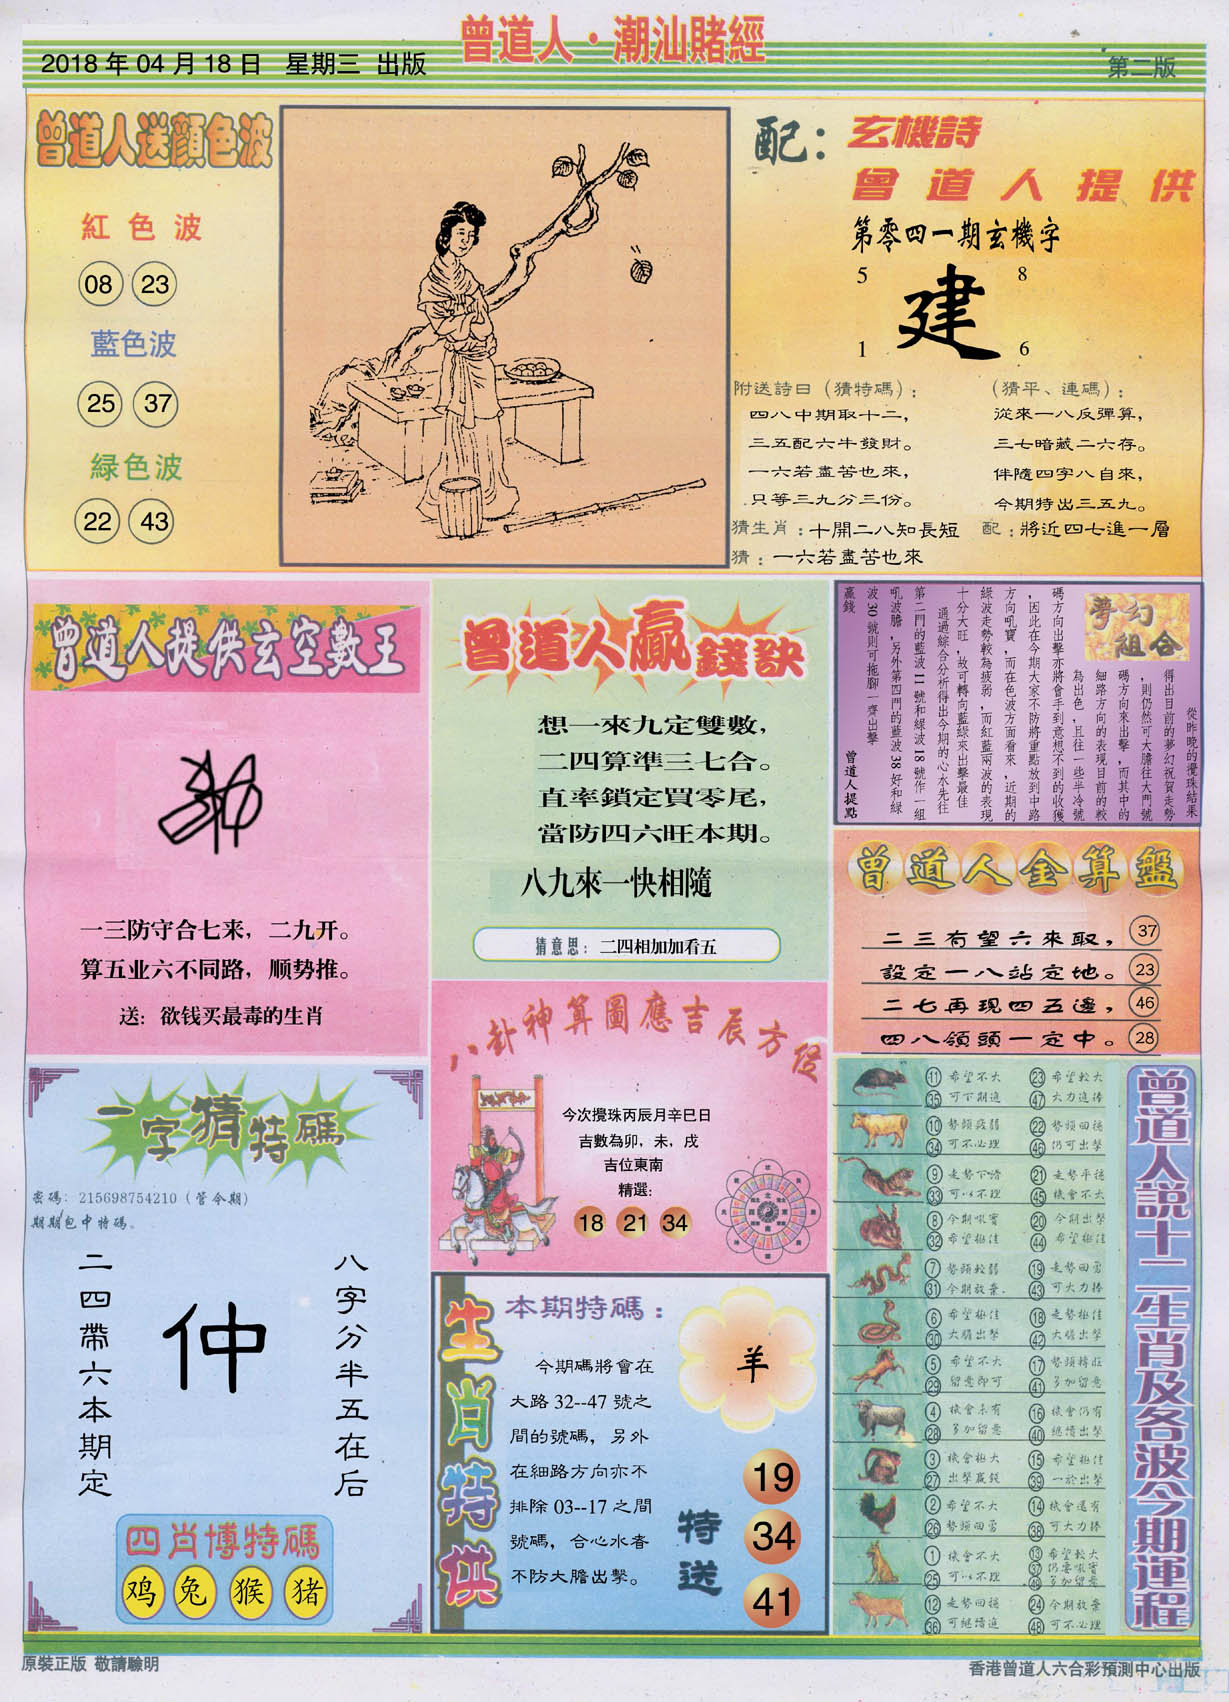 曾道人·潮汕賭經
2018年04月18日 星期三 出版
第二版
曾道人送顏色波
紅色波
08 23
藍色波
25 37
緑色波
22 43
配:玄機詩
曾道人提供
第零四一期玄機字
5 8
建
1 6
附送詩曰(猜特碼):
四八中期取十二,
三五配六牛發財。
一六若盡苦也來,
只等三九分三份。
(猜平、連碼):
從來一八反彈算,
三七暗藏二六存。
伴隨四字八自來,
今期特出三五九。
猜生肖:十開二八知長短 配:將近四七進一層
猜:一六若盡苦也來
曾道人提供玄空數王
一三防守合七来,二九开。
算五业六不同路,顺势推。
送:欲钱买最毒的生肖
曾道人贏錢訣
想一來九定雙數,
二四算準三七合。
直率鎖定買零尾,
當防四六旺本期。
八九來一快相隨
猜意思:二四相加加看五
夢幻組合
從昨晚的攪珠結果
得出目前的夢幻祝賀走勢
,則仍然可大膽往大門號
碼方向來出擊,而其中的
細路方向的表現目前的較
為出色,且往一些半冷號
碼方向出擊亦將會手到意想不到的收獲
,因此在今期大家不防將重點放到中路
方向吼寶,而在色波方面看來,近期的
綠波走勢較為疲弱,而紅藍兩波的表現
十分大旺,故可轉向藍綠來出擊最佳
通過綜合分析得出今期的心水先往
第二門的藍波11號和綠波18號作一組
吼波膽,另外第四門的藍波38好和綠
波30號則可拖腳一齊出擊
贏錢
曾道人提點
曾道人金算盤
二三有望六來取, 37
設定一八站定地。 23
二七再現四五邊, 46
四八領頭一定中。 28
八卦神算圖應吉辰方位
今次攪珠丙辰月辛巳日
吉數為卯,未,戌
吉位東南
精選:
18 21 34
一字猜特碼
密碼:215698754210(管今期)
期期包中特碼。
八字分半五在后
仲
二四帶六本期定
四肖博特碼
鸡 兔 猴 猪
生肖特供
本期特碼:
今期碼將會在
大路32--47號之
間的號碼,另外
在細路方向亦不
排除03--17之間
號碼,合心水者
不防大膽出擊。
羊
特送
19
34
41
曾道人説十二生肖及各波今期運程
11 希望不大 23 希望較大
35 可下期進 47 大力進捧
10 勢頭疲弱 22 勢頭回穩
34 可不必理 46 仍可出擊
9 走勢下滑 21 走勢平穩
33 可以不理 45 機會不大
8 今期吼寶 20 今期出擊
32 希望極佳 44 希望極佳
7 勢頭較弱 19 走勢回勇
31 今期放棄 43 可大力捧
6 希望極佳 18 走勢極佳
30 大膽出擊 42 大膽出擊
5 希望不大 17 勢頭轉旺
29 留意即可 41 多加留意
4 機會未有 16 機會仍有
28 多加留意 40 繼續出擊
3 機會極大 15 希望極佳
27 出擊贏錢 39 一於出擊
2 希望不大 14 機會還有
26 勢頭回勇 38 可大力捧
1 機會不大 13 希望較大
25 可以不理 37 仍要吼寶
49 多加留意
12 走勢回穩 24 今期放棄
36 可繼續進 48 可不必理
原裝正版 敬請驗明
香港曾道人六合彩預測中心出版